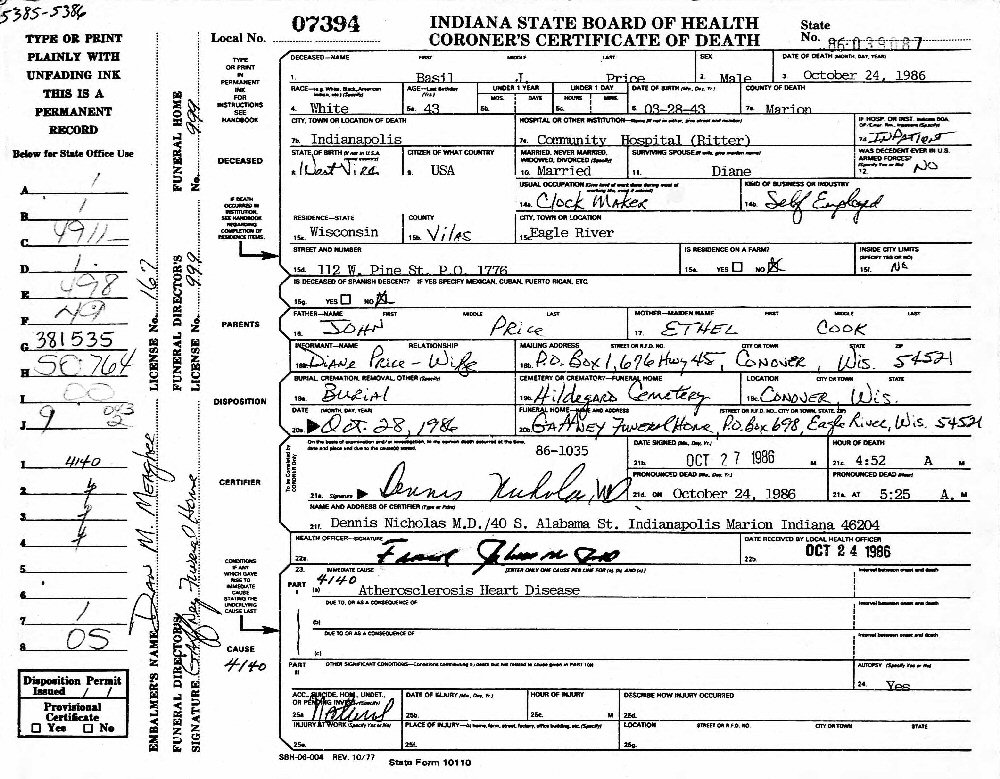 5385-5386
07394
INDIANA STATE BOARD OF HEALTH
CORONER'S CERTIFICATE OF DEATH
Local No.
State No. 86-039087
TYPE OR PRINT
PLAINLY WITH
UNFADING INK
THIS IS A
PERMANENT
RECORD
Below for State Office Use
A 1
B 1
C 4911
D 1.
E 498
F 49
G 381535
H SC 764
I 00
J 9
1 4140
2
3
4
5
6
7 1
8 05
Disposition Permit
Issued / /
Provisional
Certificate
Yes No
EMBALMER'S NAME DAN M. MEAGHER LICENSE No. 167
FUNERAL DIRECTOR'S SIGNATURE Gaffney Funeral Home
FUNERAL DIRECTOR'S LICENSE No. 999
FUNERAL HOME No. 999
TYPE OR PRINT IN PERMANENT INK FOR INSTRUCTIONS SEE HANDBOOK
DECEASED
IF DEATH OCCURRED IN INSTITUTION, SEE HANDBOOK REGARDING COMPLETION OF RESIDENCE ITEMS.
PARENTS
DISPOSITION
CERTIFIER
CONDITIONS IF ANY WHICH GAVE RISE TO IMMEDIATE CAUSE STATING THE UNDERLYING CAUSE LAST
CAUSE
4140
DECEASED—NAME FIRST MIDDLE LAST SEX DATE OF DEATH (MONTH, DAY, YEAR)
1. Basil J. Price 2. Male 3. October 24, 1986
RACE AGE—Last Birthday (Yrs.) UNDER 1 YEAR MOS. DAYS UNDER 1 DAY HOURS MINS. DATE OF BIRTH (Mo., Day, Yr.) COUNTY OF DEATH
4. White 5a. 43 5b. 5c. 6. 03-28-43 7a. Marion
CITY, TOWN OR LOCATION OF DEATH HOSPITAL OR OTHER INSTITUTION
7b. Indianapolis 7c. Community Hospital (Ritter) 7d. INPATIENT
STATE OF BIRTH CITIZEN OF WHAT COUNTRY MARRIED, NEVER MARRIED, WIDOWED, DIVORCED (Specify) SURVIVING SPOUSE WAS DECEDENT EVER IN U.S. ARMED FORCES?
8. West Virg 9. USA 10. Married 11. Diane 12. NO
USUAL OCCUPATION KIND OF BUSINESS OR INDUSTRY
14a. Clock Maker 14b. Self Employed
RESIDENCE—STATE COUNTY CITY, TOWN OR LOCATION
15a. Wisconsin 15b. Vilas 15c. Eagle River
STREET AND NUMBER IS RESIDENCE ON A FARM? INSIDE CITY LIMITS (SPECIFY YES OR NO)
15d. 112 W. Pine St. P.O. 1776 15e. YES NO 15f. No
IS DECEASED OF SPANISH DESCENT? IF YES SPECIFY MEXICAN, CUBAN, PUERTO RICAN, ETC.
15g. YES NO
FATHER—NAME FIRST MIDDLE LAST MOTHER—MAIDEN NAME FIRST MIDDLE LAST
16. JOHN PRICE 17. ETHEL COOK
INFORMANT—NAME RELATIONSHIP MAILING ADDRESS STREET OR R.F.D. NO. CITY OR TOWN STATE ZIP
18a. Diane Price - Wife 18b. P.O. Box 1, 676 Hwy 45, Conover, Wis. 54521
BURIAL, CREMATION, REMOVAL, OTHER (Specify) CEMETERY OR CREMATORY—FUNERAL HOME LOCATION CITY OR TOWN STATE
19a. Burial 19b. Hildegard Cemetery 19c. Conover, Wis.
DATE (MONTH, DAY, YEAR) FUNERAL HOME—NAME AND ADDRESS (STREET OR R.F.D. NO., CITY OR TOWN, STATE, ZIP)
20a. Oct. 28, 1986 20b. Gaffney Funeral Home, P.O. Box 698, Eagle River, Wis. 54521
To be Completed by CORONER Only
On the basis of examination and/or investigation, in my opinion death occurred at the time, date and place and due to the cause(s) stated. DATE SIGNED (Mo., Day, Yr.) HOUR OF DEATH
86-1035 21b. OCT 27 1986 M 21c. 4:52 A M
PRONOUNCED DEAD (Mo., Day, Yr.) PRONOUNCED DEAD (Hour)
21a. Signature Dennis Nicholas MD 21d. ON October 24, 1986 21e. AT 5:25 A. M
NAME AND ADDRESS OF CERTIFIER (Type or Print)
21f. Dennis Nicholas M.D./40 S. Alabama St. Indianapolis Marion Indiana 46204
HEALTH OFFICER—SIGNATURE DATE RECEIVED BY LOCAL HEALTH OFFICER
22a. 22b. OCT 24 1986
23. IMMEDIATE CAUSE (ENTER ONLY ONE CAUSE PER LINE FOR (a), (b), AND (c)) Interval between onset and death
PART I 4140
(a) Atherosclerosis Heart Disease
DUE TO, OR AS A CONSEQUENCE OF Interval between onset and death
(b)
DUE TO OR AS A CONSEQUENCE OF Interval between onset and death
(c)
PART II OTHER SIGNIFICANT CONDITIONS—Conditions contributing to death but not related to cause given in PART I (a) AUTOPSY (Specify Yes or No)
24. Yes
ACC., SUICIDE, HOM., UNDET., OR PENDING INVEST. (Specify) DATE OF INJURY (Mo., Day, Yr.) HOUR OF INJURY DESCRIBE HOW INJURY OCCURRED
25a. Natural 25b. 25c. M 25d.
INJURY AT WORK (Specify Yes or No) PLACE OF INJURY—At home, farm, street, factory, office building, etc. (Specify) LOCATION STREET OR R.F.D. NO. CITY OR TOWN STATE
25e. 25f. 25g.
SBH-06-004 REV. 10/77 State Form 10110